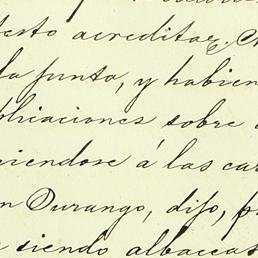 esto acreditar.
la junta, y habien
pliaciones sobre
niendose á las car
n Durango, dijo, p
siendo albaceas